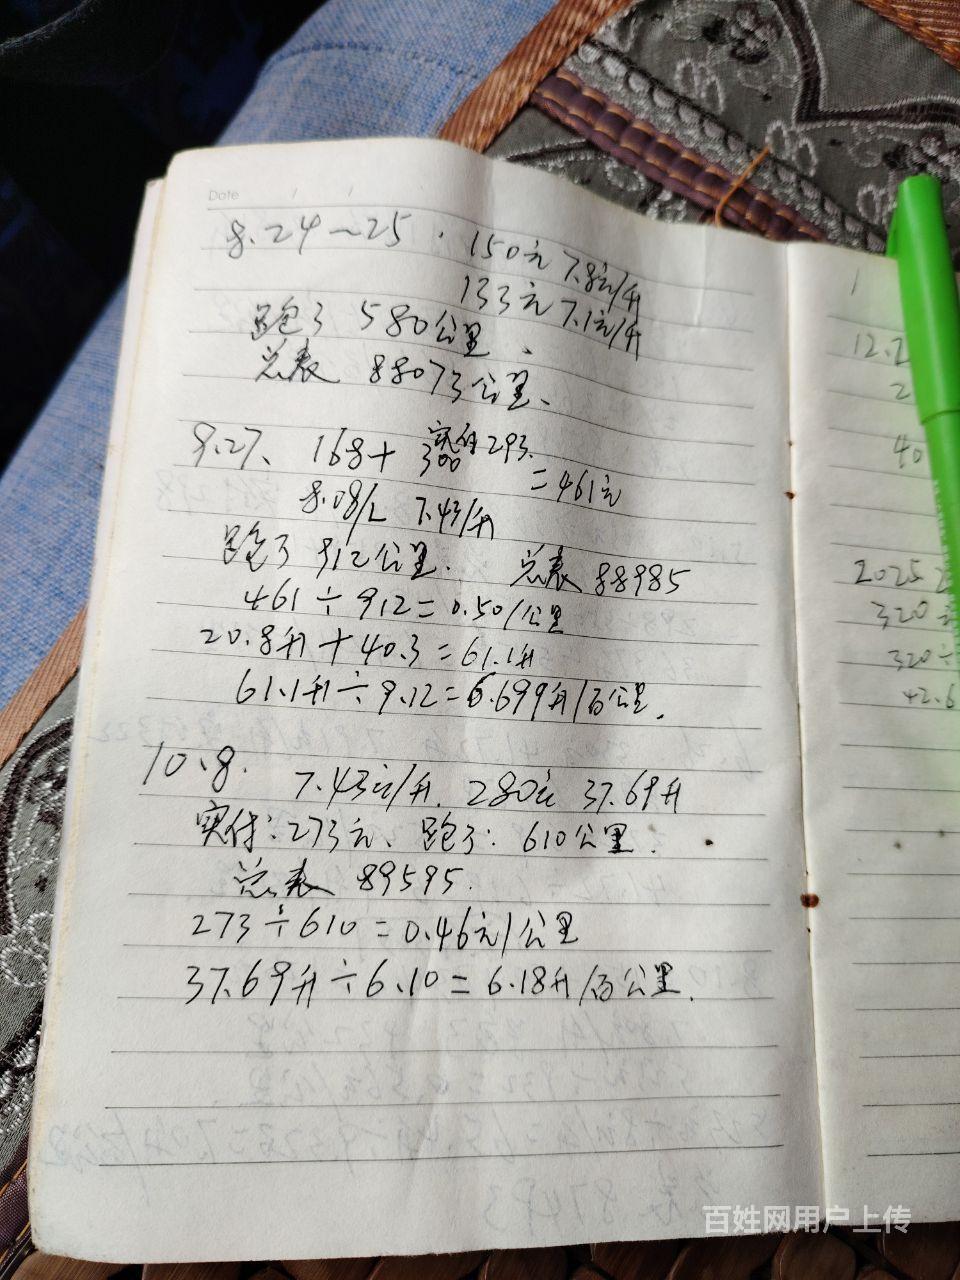 Date
8.24~25. 150元 7.8元/升
133元 7.1元/升
跑了 580公里、
总表 88073公里、
9.27、 168+ 300 实付293.
=461元
8.08/L 7.43/升
跑了 912公里. 总表 88985
461÷912=0.50/公里
20.8升+40.3=61.1升
61.1升÷9.12=6.699升/百公里.
10.8. 7.43元/升. 280元 37.69升
实付:273元、跑了:610公里.
总表 89595.
273÷610=0.46元/公里
37.69升÷6.10=6.18升/百公里.
1
12.2
2
40
2025
320元
320÷
42.6
百姓网用户上传